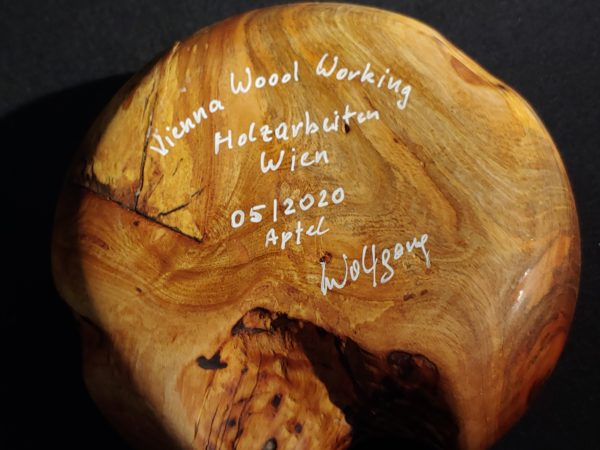 Vienna Woood Working
Holzarbeiten
Wien
05/2020
Apfel
Wolfgang